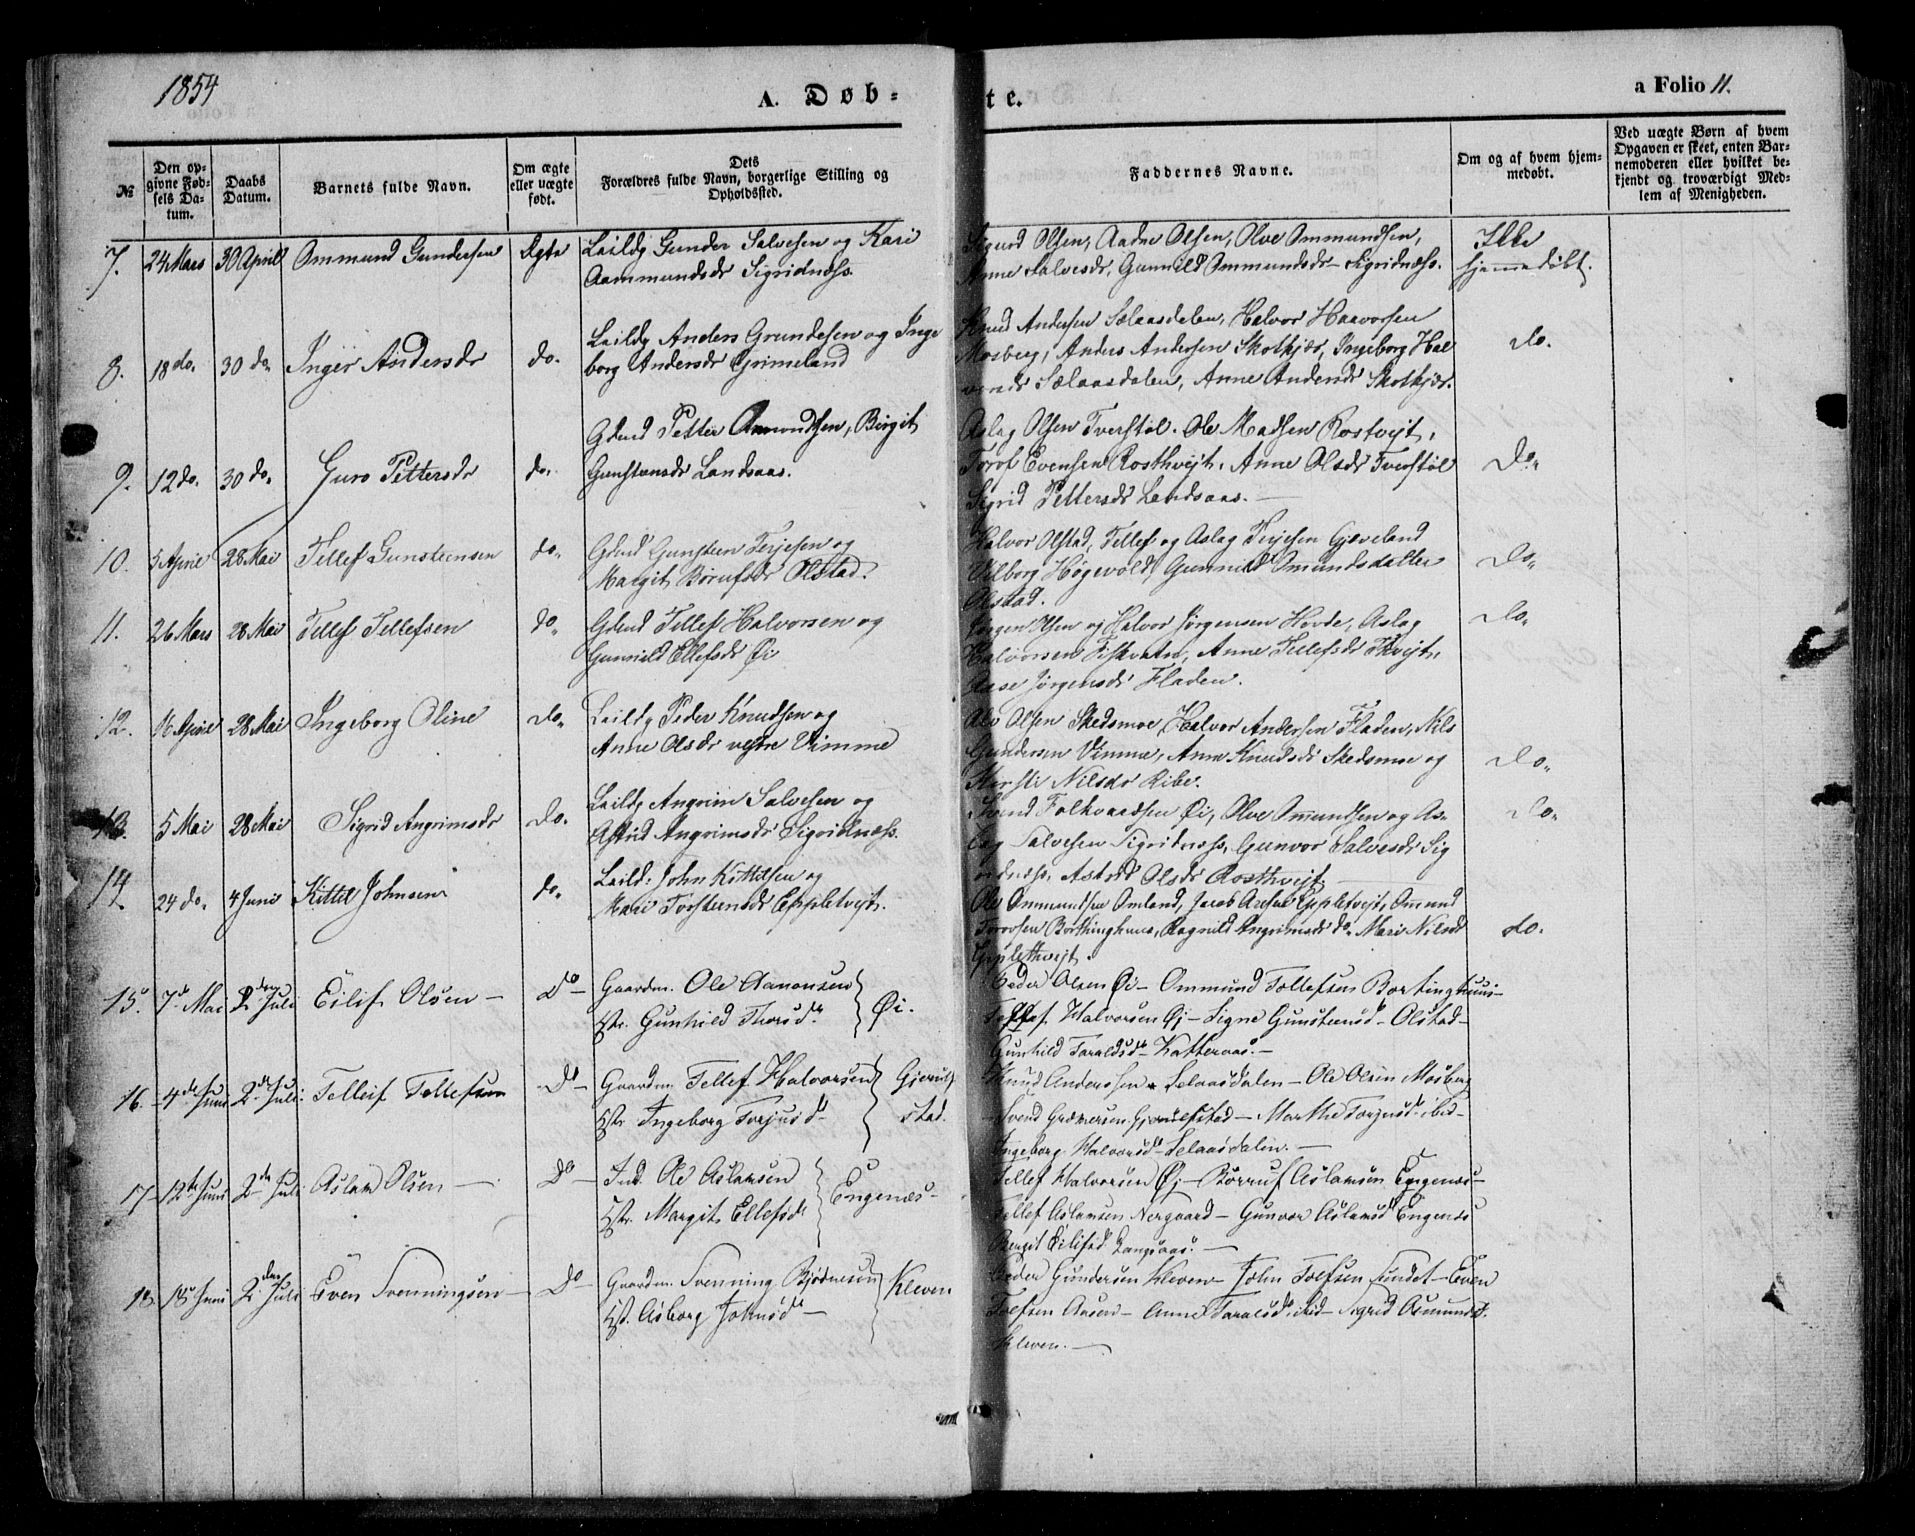 1854
A. Døb-
te.
a Folio 11.
№
Den op-
givne Fød-
sels Da-
tum.
Daabs
Datum.
Barnets fulde Navn.
Om ægte
eller uægte
født.
Dets
Forældres fulde Navn, borgerlige Stilling og
Opholdssted.
Faddernes Navne.
Om og af hvem hjem-
medøbt.
Ved uægte Børn af hvem
Opgaven er skeet, enten Bar-
nemoderen eller hvilket be-
kjendt og troværdigt Med-
lem af Menigheden.
7. 24 Mars 30 April Ommund Gundersen Ægte Leildg Gunder Salvesen og Kari
Aammundsdr Sigridnæss.
Sigurd Olsen, Aadne Olsen, Olve Ommundsen,
Anne Salvesdr, Gunnild Ommundsdr – Sigridnæss.
Ikke
hjemmedøbt.
8. 18 do. 30 do. Inger Andersdr do. Leildg Anders Grundesen og Inge
borg Andersdr Grimeland
Knud Andersen Sælaasdalen, Halvor Haavorsen
Mosberg, Anders Andersen Skotkjær, Ingeborg Hal
vorsdr Sælaasdalen, Anne Andersdr Skotkjær.
do.
9. 12 do. 30 do. Guro Pettersdr do. Gdmd Petter Omundsen, Birgit
Gunstensdr Landsaas.
Aslag Olsen Tverstøl. Ole Madsen Rostveit,
Torof Evensen Rosthveit, Anne Olsdr Tverstøl
Sigrid Pettersdr Landsaas.
Do.
10. 5 April 28 Mai Tellef Gunsteensen do. Gdmd Gunsten Terjesen og
Margit Børufsdr Olstad.
Halvor Olstad, Tellef og Aslag Terjesen Gjeveland
Vilborg Høgevold, Gunnild Omundsdatter
Olstad.
Do.
11. 26 Mars 28 Mai Tellef Tellefsen do. Gdmd Tellef Halvorsen og
Gunnild Ellefsdr Øi
Jørgen Olsen og Halvor Jørgensen Hovde, Aslag
Halvorsen Fiskvatn, Anne Tellefsdr Tkveit,
Aase Jørgensdr Fladen.
do.
12. 16 April 28 Mai Ingeborg Oline do. Leildg Peder Knudsen og
Anne Olsdr vestre Vimme
Alv Olsen Skedsmoe, Halvor Andersen Fladen, Nils
Gundersen Vimme, Anne Knudsdr Skedsmoe og
Kirsti Nilsdr Ribe.
do.
13. 5 Mai 28 Mai Sigrid Angrimsdr do. Leildg Angrim Salvesen og
Astrid Angrimsdr Sigridnæss.
Svend Folkvardsen Øi, Olve Ommundsen og As-
lag Salvesen Sigridnæss, Gunvor Salvesdr Sig
ridnæss, Astrid Olsdr Rosthveit
do.
14. 24 do. 4 Juni Kittel Johnsen do. Leild: John Kittelsen og
Mari Torstensdr Eppletveit.
Ole Ommundsen Omland, Jacob Eppletveit, Ommund
Torovsen Borthinghuus, Ragnild Angrimsdr do. Mari Nilsdr
Epplethveit.
do.
15. 7de Mai 2den Juli Eilif Olsen – Do – Gaardm. Ole Aanonsen
Hstr. Gunhild Thorsdr. Øi.
Peder Olsen Øi – Ommund Tellefsen Bortinghuus –
Tellef Halvorsen Øj – Signe Gunsteensdr – Olstad –
Gunhild Taraldsdr – Katteraas. –
16. 4de Juni 2den Juli Telleif Tellefsen Do – Gaardm. Tellef Halvorsen
Hstr. Ingeborg Torjusdr – Gjerulf
stad.
Knud Anderssen – Selaasdalen – Ole Olsen Mosberg
– Svend Gjerulfstad – Marthe Torjusdr ibid –
Ingeborg Halvorsdr – Selaasdalen. –
17 12te Juni 2den Juli Aslam Olsen – Do – Ind. Ole Aslamsen
Hstr. Margit Ellefsdr Engenæs –
Tellef Halvorsen Øj – Børruf Aslamsen Engenæs –
Tellef Aslamsen Nergaard – Gunvor Aslamsdr Engenæs
Bergit Eilifsd Langsaas. –
18 18 Juni 2den Juli Even Svenningsen – Do – Gaardm. Svenning Bjørnsen
Hst. Asborg Johnsdr – Kleven
Peder Gundersen Kleven – John Toefsen Sundet – Even
Toefsen Aasen – Anne Taralsdr ibid – Sigrid Asmundsd.
Kleven. –